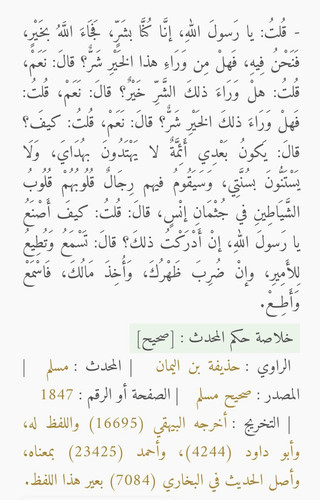 - قُلتُ: يا رَسولَ اللهِ، إنَّا كُنَّا بشَرٍّ، فَجَاءَ اللَّهُ بخَيْرٍ،
فَنَحْنُ فِيهِ، فَهلْ مِن وَرَاءِ هذا الخَيْرِ شَرٌّ؟ قالَ: نَعَمْ،
قُلتُ: هلْ وَرَاءَ ذلكَ الشَّرِّ خَيْرٌ؟ قالَ: نَعَمْ، قُلتُ:
فَهلْ وَرَاءَ ذلكَ الخَيْرِ شَرٌّ؟ قالَ: نَعَمْ، قُلتُ: كيفَ؟
قالَ: يَكونُ بَعْدِي أَئِمَّةٌ لا يَهْتَدُونَ بهُدَايَ، وَلَا
يَسْتَنُّونَ بسُنَّتِي، وَسَيَقُومُ فيهم رِجَالٌ قُلُوبُهُمْ قُلُوبُ
الشَّيَاطِينِ في جُثْمَانِ إنْسٍ، قالَ: قُلتُ: كيفَ أَصْنَعُ
يا رَسولَ اللهِ، إنْ أَدْرَكْتُ ذلكَ؟ قالَ: تَسْمَعُ وَتُطِيعُ
لِلأَمِيرِ، وإنْ ضُرِبَ ظَهْرُكَ، وَأُخِذَ مَالُكَ، فَاسْمَعْ
وَأَطِعْ.
خلاصة حكم المحدث : [صحيح]
الراوي : حذيفة بن اليمان | المحدث : مسلم |
المصدر : صحيح مسلم | الصفحة أو الرقم : 1847
| التخريج : أخرجه البيهقي (16695) واللفظ له،
وأبو داود (4244)، وأحمد (23425) بمعناه،
وأصل الحديث في البخاري (7084) بعير هذا اللفظ.